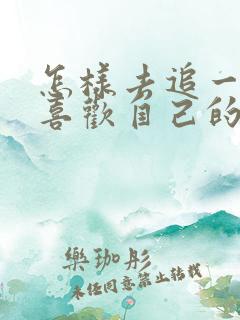 怎樣去追一
喜歡自己的
樂珈彤
未任同意禁止转载